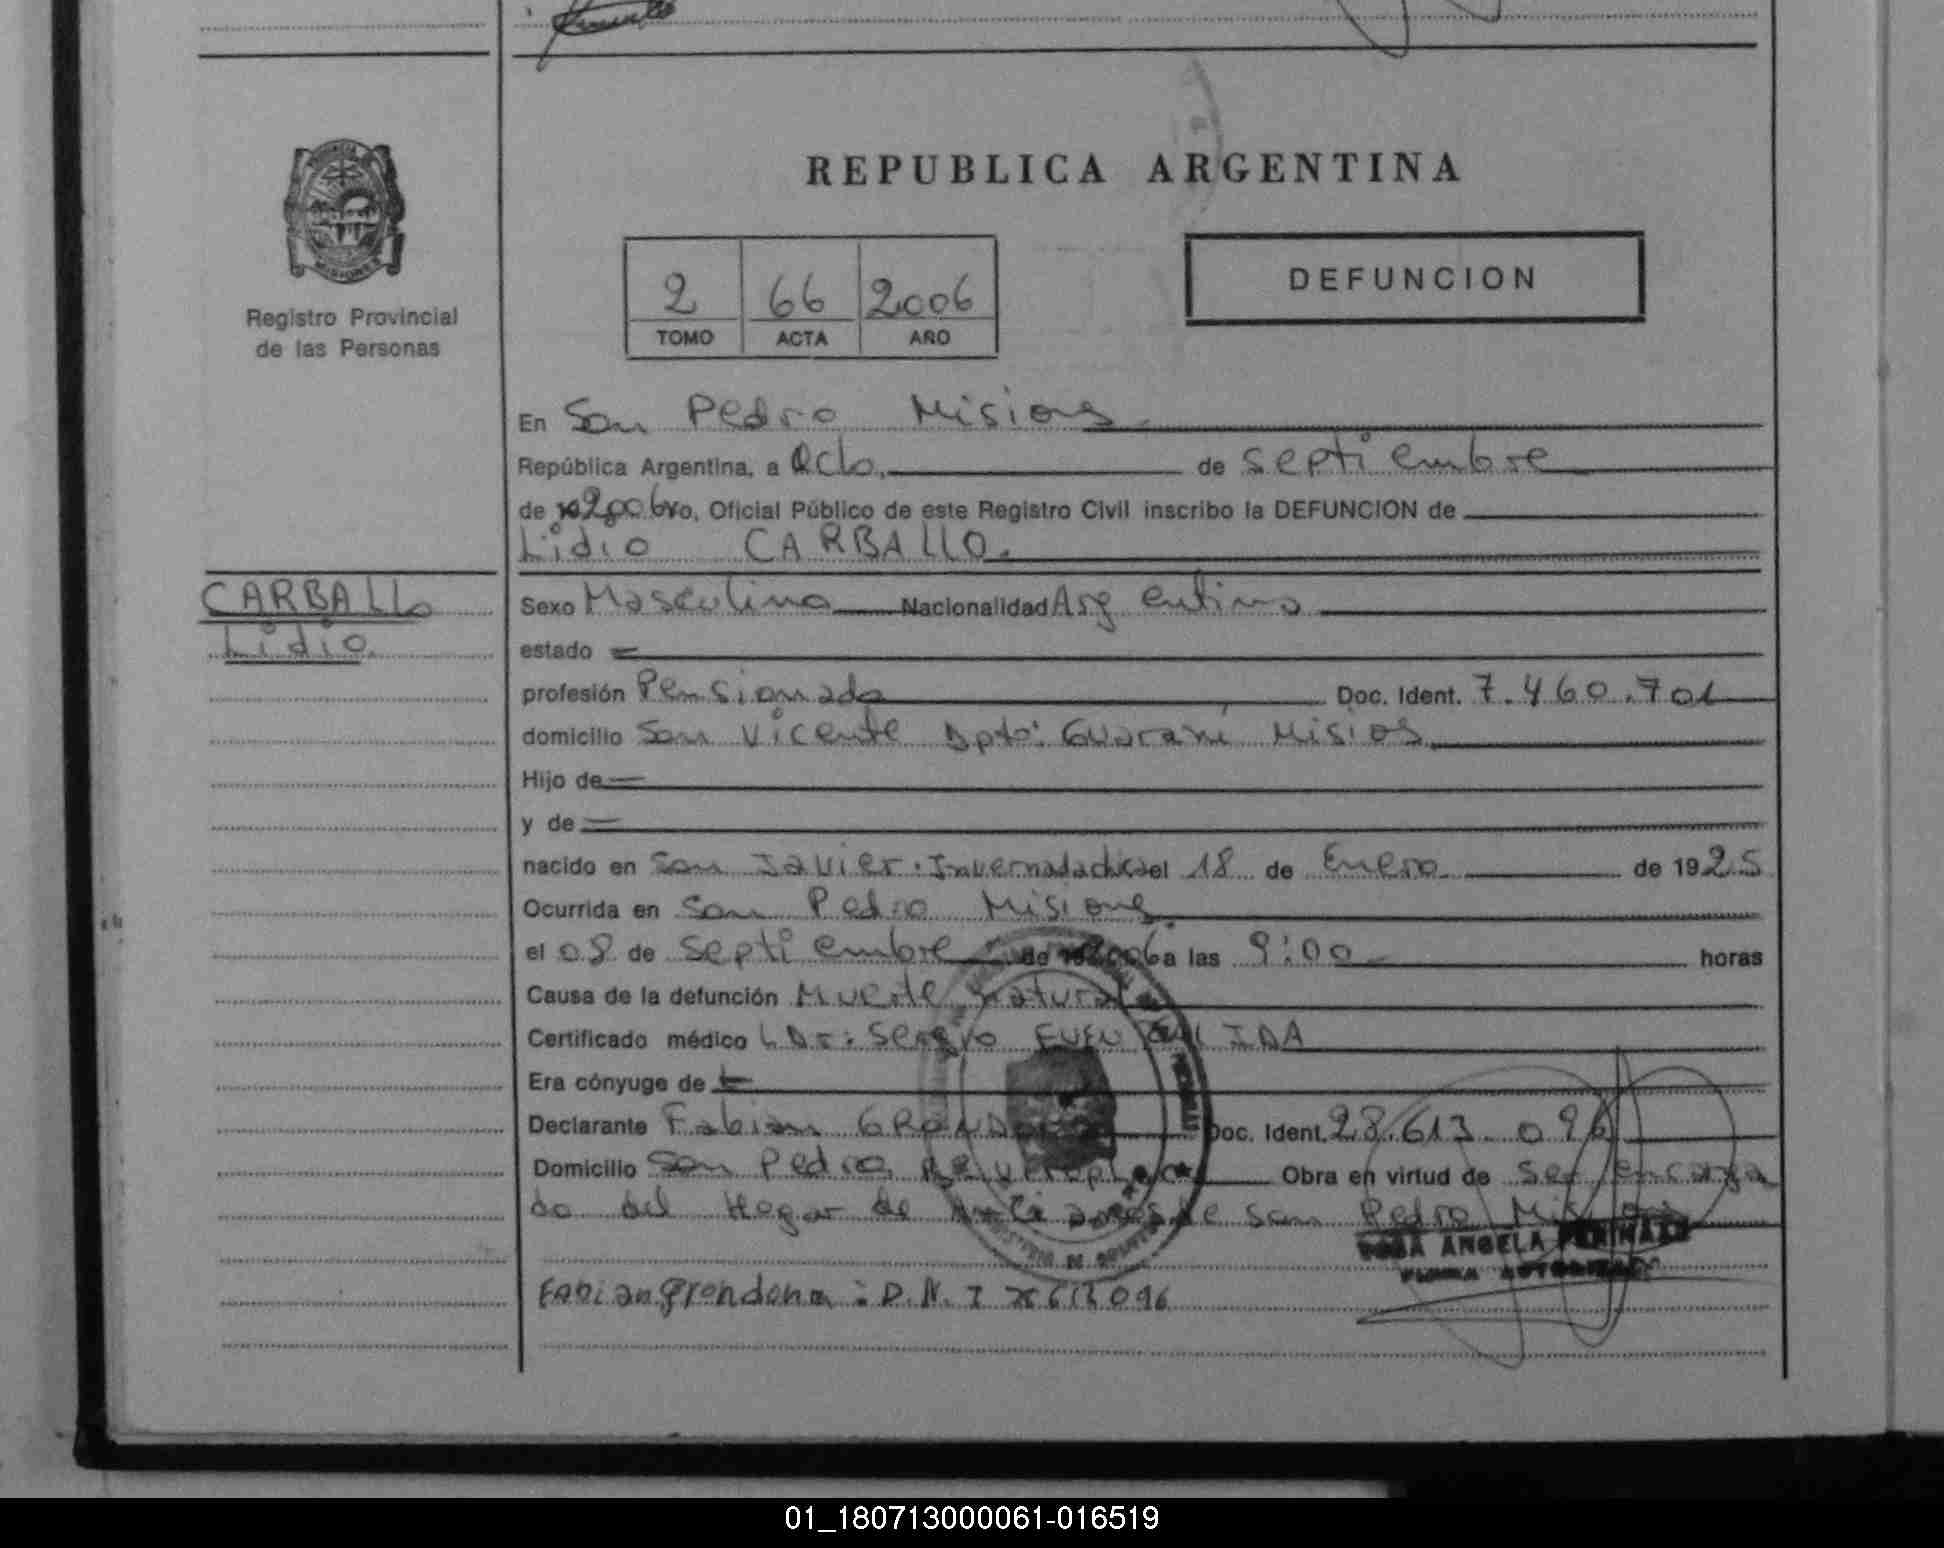 REPUBLICA ARGENTINA
PROVINCIA
MISIONES
Registro Provincial
de las Personas
2 66 2006
TOMO ACTA AÑO
DEFUNCION
En San Pedro Misiones
República Argentina, a Ocho, de septiembre
de 2006 yo, Oficial Público de este Registro Civil inscribo la DEFUNCION de
Lidio CARBALLO.
CARBALLO
Lidio
Sexo Masculino Nacionalidad Argentino
estado
profesión Pensionado Doc. Ident. 7.460.701
domicilio San Vicente Dpto: Guaraní Misios
Hijo de
y de
nacido en San Javier. el 18 de Enero de 1925
Ocurrida en San Pedro Misiones
el 08 de septiembre de 2006 a las 9:00 horas
Causa de la defunción Muerte Natural
Certificado médico Dr: Sergio
Era cónyuge de
Declarante Fabian Doc. Ident. 28.613.096
Domicilio San Pedro, Obra en virtud de ser encarga
do del Hogar de de San Pedro
ROSA ANGELA
Fabian Grondona: D.N.I 28613096
01_180713000061-016519